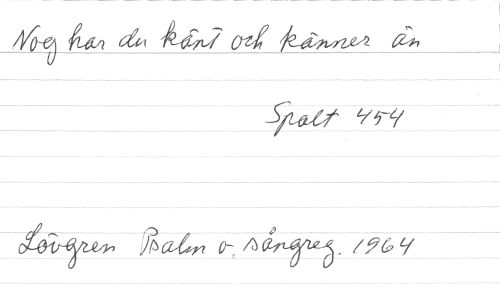 Nog har du känt och känner än
Spalt 454
Lövgren Psalm o. sångreg. 1964